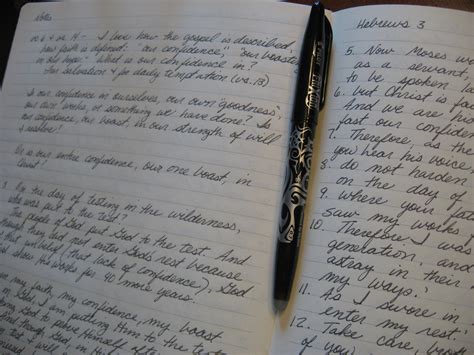 Notes
vs 6 & vs 14 - I love how the gospel is described,
how faith is defined: "our confidence," "our boasting
in our hope." What is our confidence in?
For salvation & for daily temptation (vs. 13)
Is our confidence in ourselves, our own 'goodness',
our own works, or something we have done? Is
our confidence, our boast, in our strength of will
& resolve?
Or is our entire confidence, our one boast, in
On the day of testing in the wilderness,
who was put to the test?
The people of God put God to the test. And
though they did not enter God's rest because
that unbelief (that lack of confidence), God
show His works for 40 more years.
my faith, my confidence, my boast
in God, I am putting Him to the test
Him
Hebrews 3
5. Now Moses w
as a servant
to be spoken la
6. but Christ is fa
And we are his
fast our confide
7. Therefore, as the
you hear his voice,
8. do not harden
on the day of
9. where your fat
saw my works
10. Therefore I was
generation, and
astray in their
my ways.'
11. As I swore in
enter my rest.'
12. Take care, b